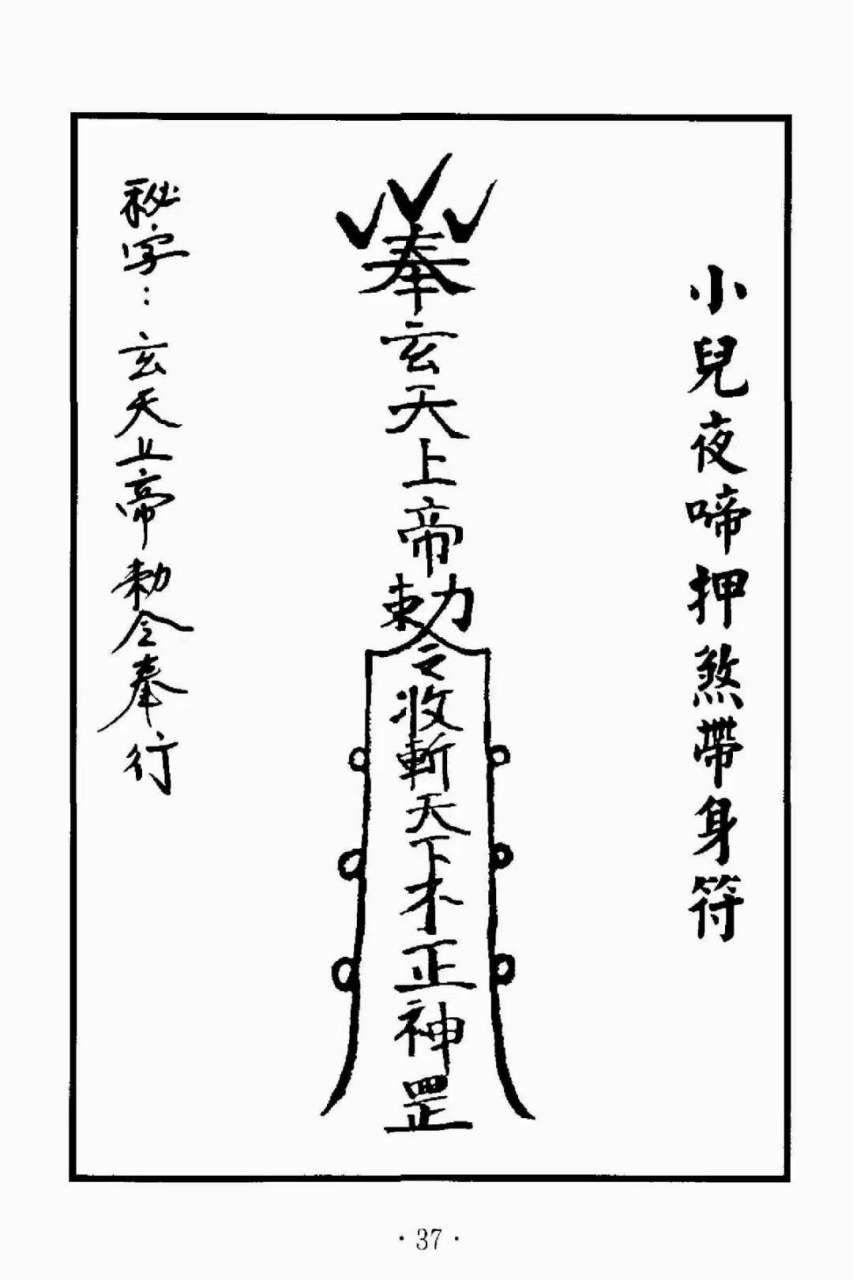 小兒夜啼押煞帶身符
奉玄天上帝敕令收斬天下不正神罡
秘字：玄天上帝敕令奉行
·37·